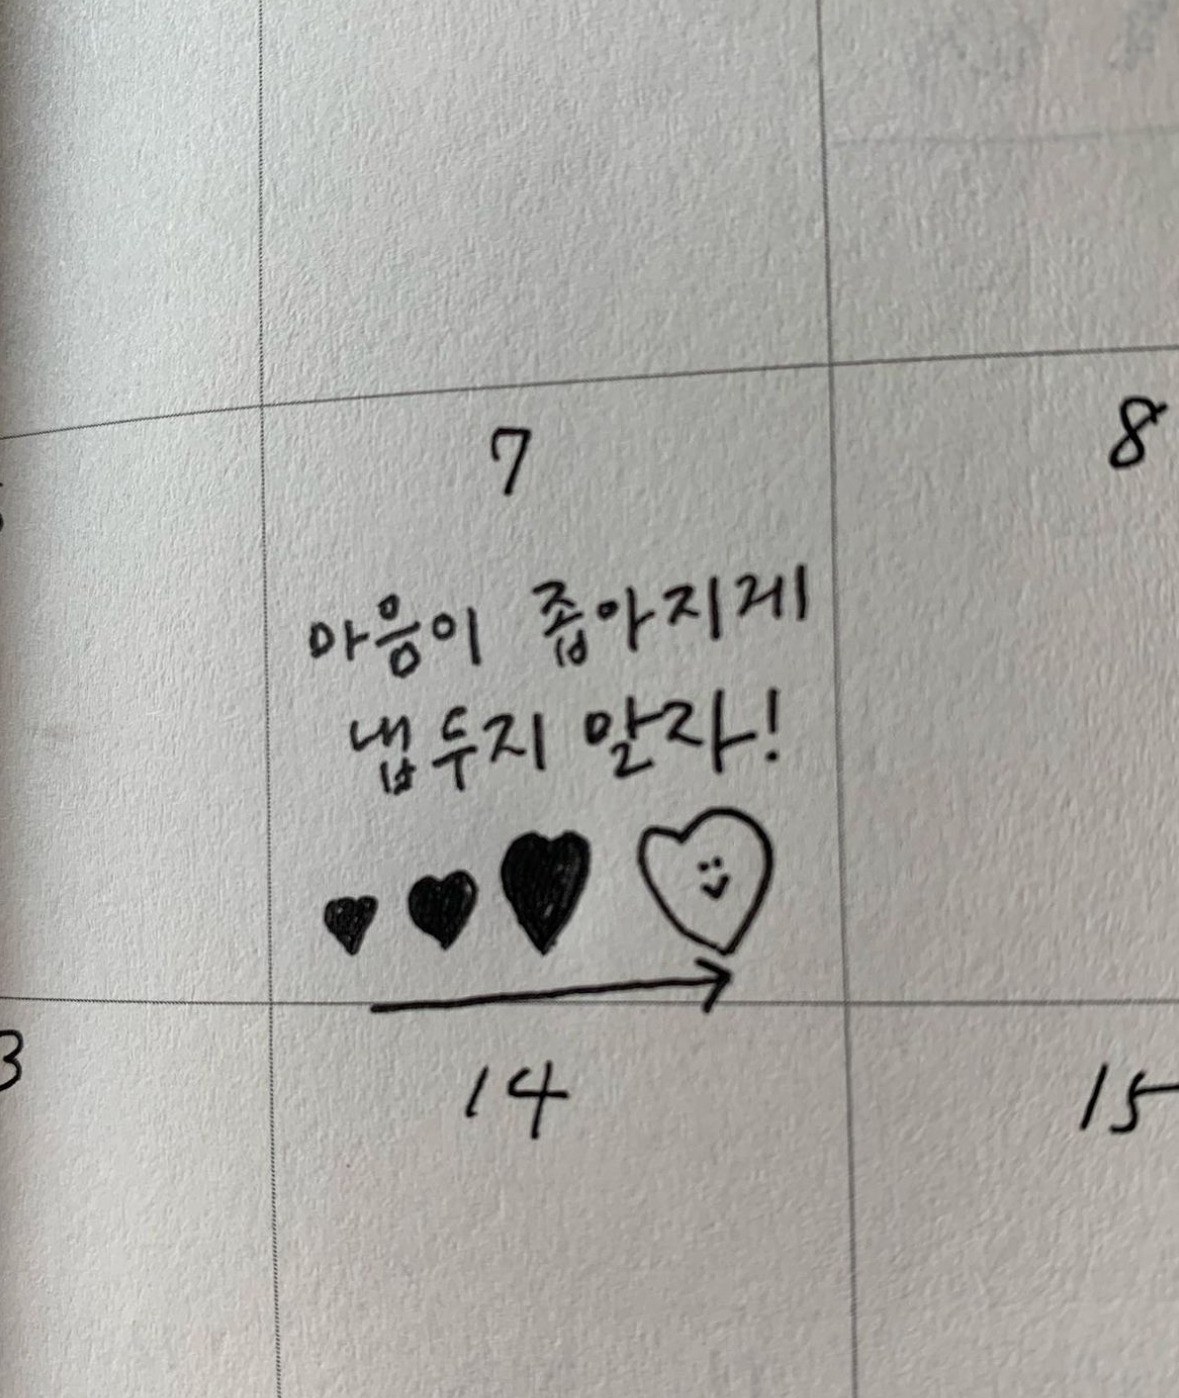 7 8
마음이 좁아지게
냅두지 말자!
3 14 15